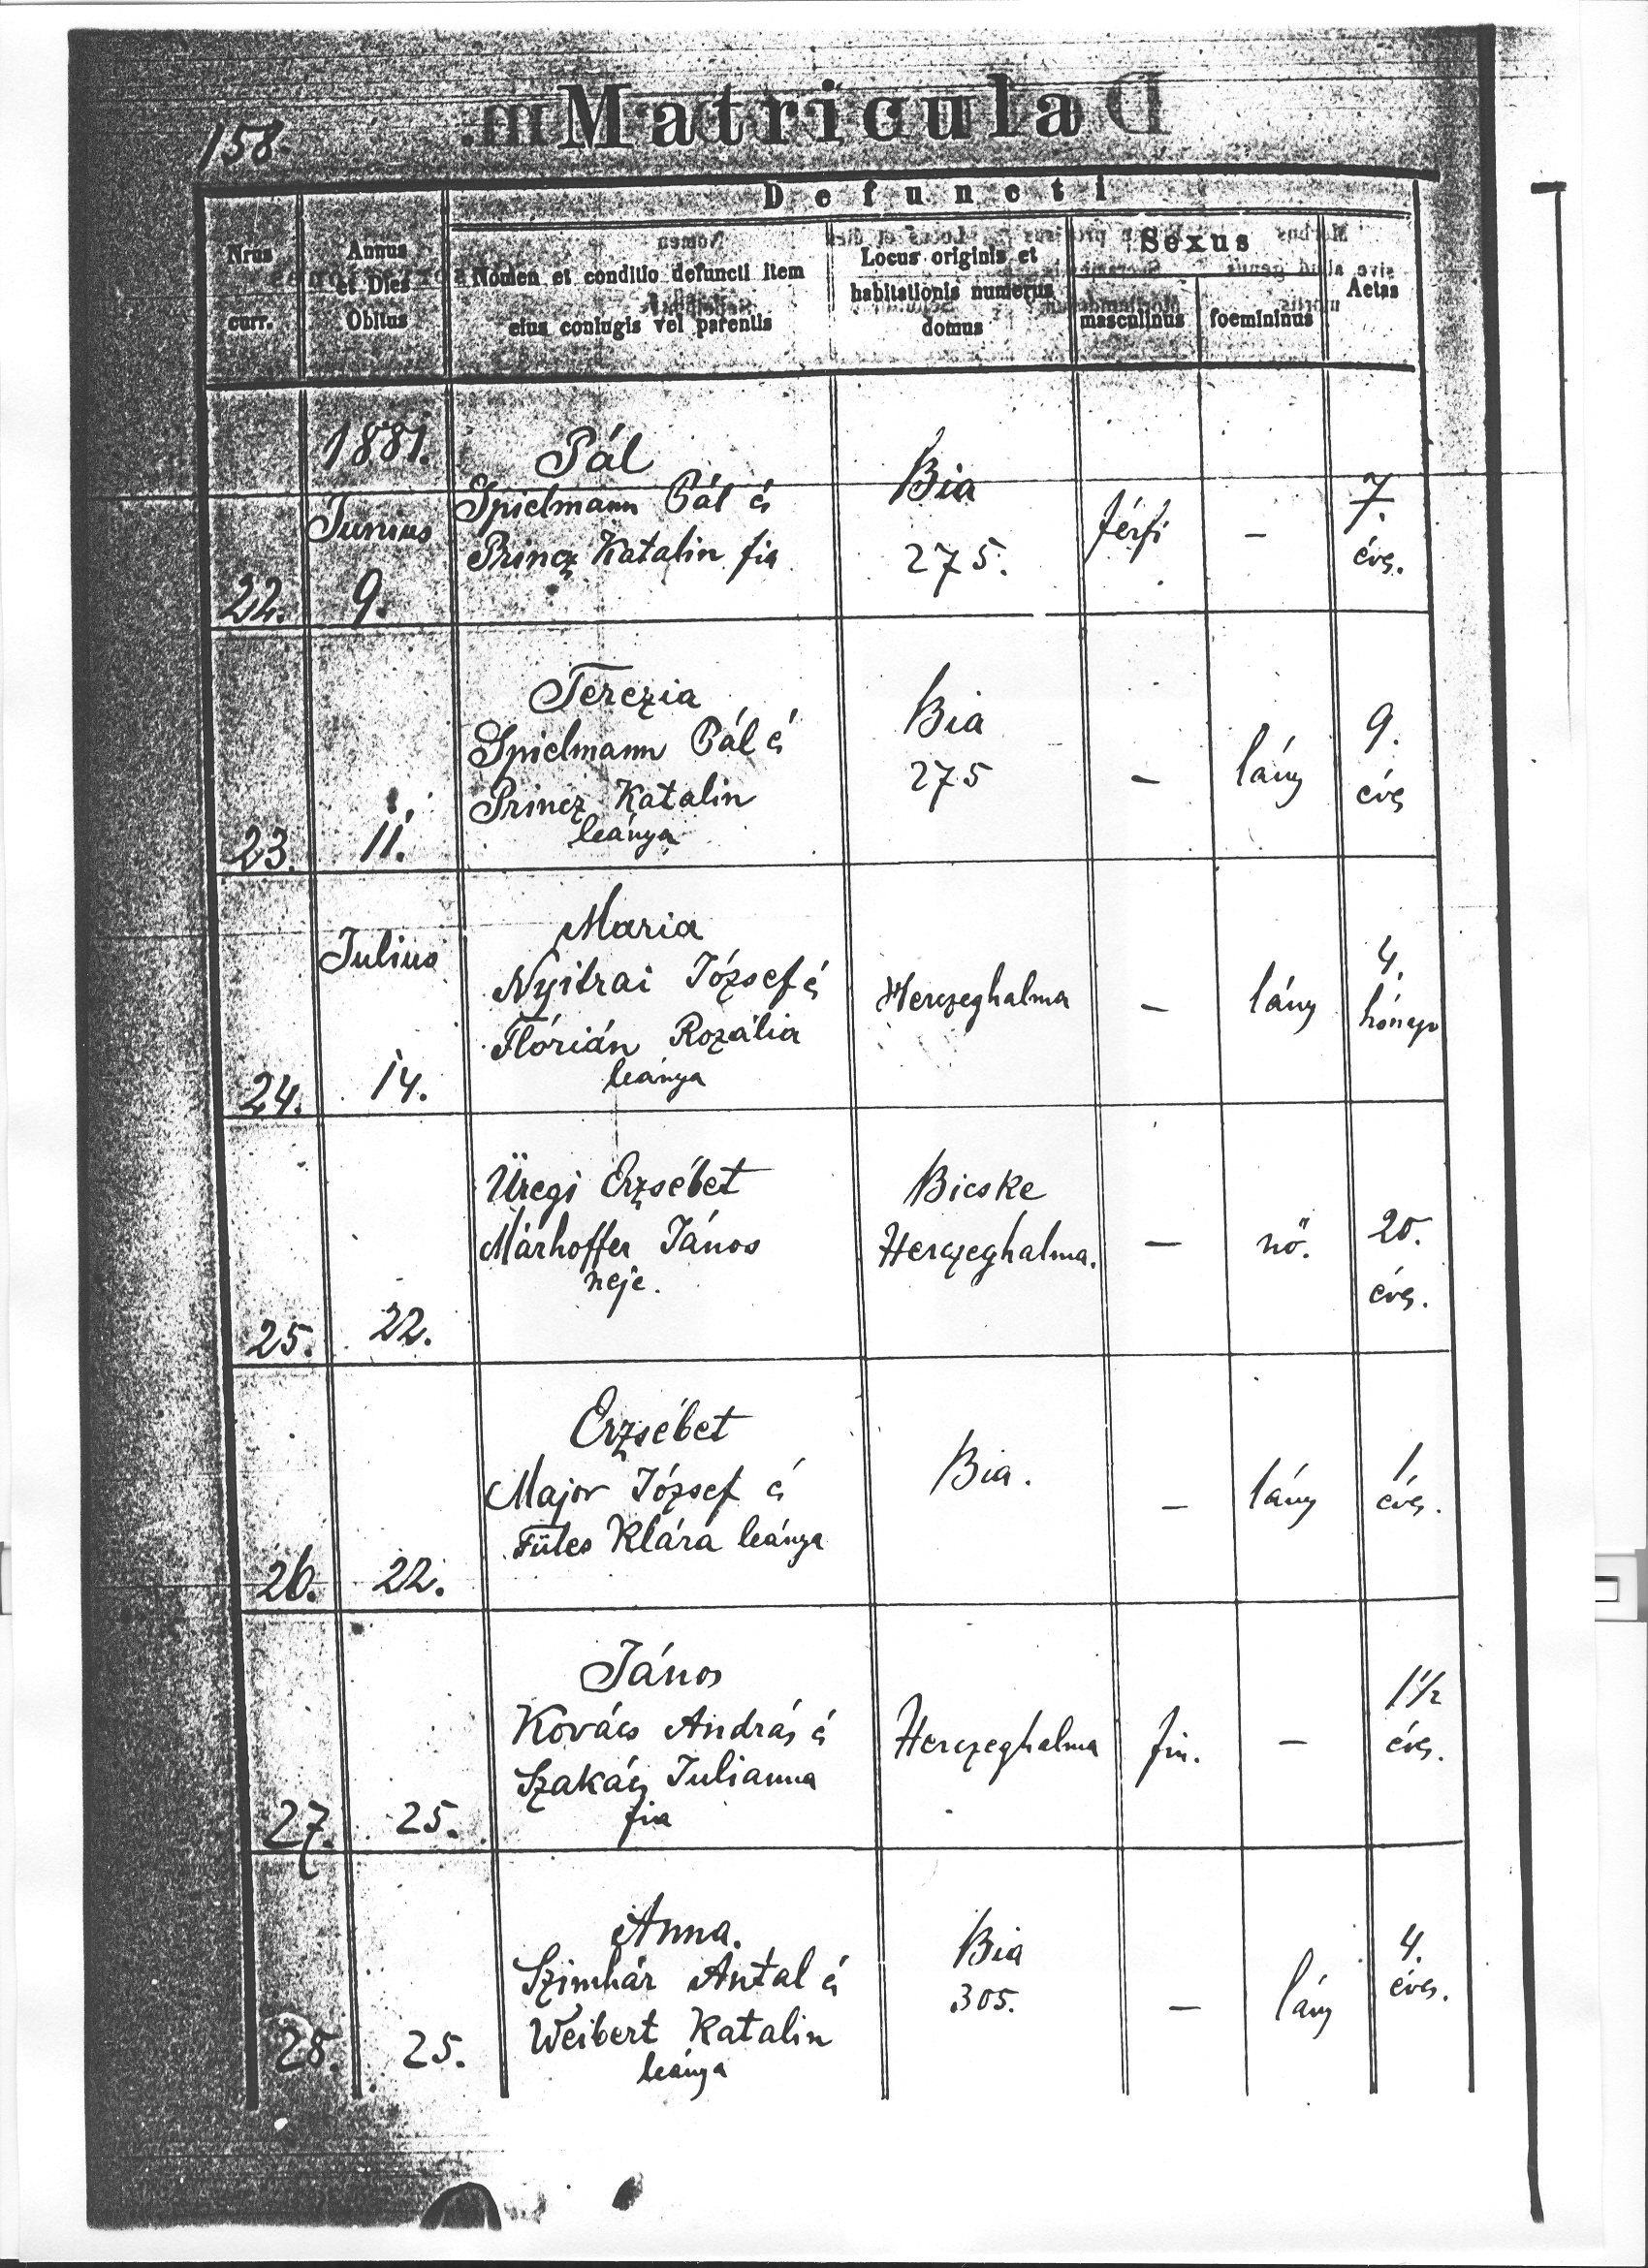 158.
Matricula
Defuncti
Nrus curr.
Annus et Dies Obitus
Nomen et conditio defuncti item eius coniugis vel parentis
Locus originis et habitationis numerus domus
Sexus
masculinus
foemininus
Aetas
1881.
Junius
22.
9.
Pál
Spielmann Pál és
Princz Katalin fia
Bia
275.
férfi
–
7.
éves.
23.
11.
Terezia
Spielmann Pál és
Princz Katalin
leánya
Bia
275
–
lány
9.
éves
Julius
24.
14.
Maria
Nyitrai József és
Flórián Rozália
leánya
Herczeghalma
–
lány
4.
hónapo
25.
22.
Üregi Erzsébet
Márhoffer János
neje.
Bicske
Herczeghalma.
–
nő.
20.
éves.
26.
22.
Erzsébet
Major József és
Fütes Klára leánya
Bia.
–
lány
1
éves.
27.
25.
János
Kovács András és
Szakács Julianna
fia
Herczeghalma
fiu.
–
1 1/2
éves.
28.
25.
Anna.
Szimhár Antal és
Weibert Katalin
leánya
Bia
305.
–
lány
4.
éves.